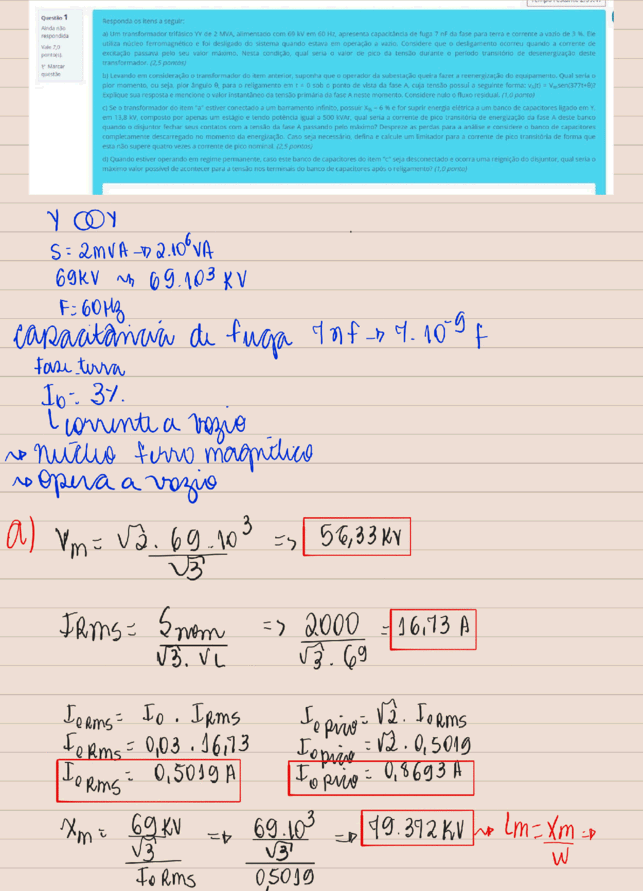 Tempo restante
Questão 1
Ainda não
respondida
Vale 7,0
ponto(s).
Marcar
questão
Responda os itens a seguir:
a) Um transformador trifásico YY de 2 MVA, alimentado com 69 kV em 60 Hz, apresenta capacitância de fuga 7 nF da fase para terra e corrente a vazio de 3 %. Ele
utiliza núcleo ferromagnético e foi desligado do sistema quando estava em operação a vazio. Considere que o desligamento ocorreu quando a corrente de
excitação passava pelo seu valor máximo. Nesta condição, qual seria o valor de pico da tensão durante o período transitório de desenergização deste
transformador. (2,5 pontos)
b) Levando em consideração o transformador do item anterior, suponha que o operador da subestação queira fazer a reenergização do equipamento. Qual seria o
pior momento, ou seja, pior ângulo θ, para o religamento em t = 0 sob o ponto de vista da fase A, cuja tensão possui a seguinte forma: v₁(t) = Vₘsen(377t+θ)?
Explique sua resposta e mencione o valor instantâneo da tensão primária da fase A neste momento. Considere nulo o fluxo residual. (1,0 ponto)
c) Se o transformador do item "a" estiver conectado a um barramento infinito, possuir X% = 6 % e for suprir energia elétrica a um banco de capacitores ligado em Y,
em 13,8 kV, composto por apenas um estágio e sendo potência igual a 500 kVAr, qual seria a corrente de pico transitória de energização da fase A deste banco
quando o disjuntor fechar seus contatos com a tensão da fase A passando pelo máximo? Despreze as perdas para a análise e considere o banco de capacitores
completamente descarregado no momento da energização. Caso seja necessário, defina e calcule um limitador para a corrente de pico transitória de forma que
esta não supere quatro vezes a corrente de pico nominal. (2,5 pontos)
d) Quando estiver operando em regime permanente, caso este banco de capacitores do item "c" seja desconectado e ocorra uma reignição do disjuntor, qual seria o
máximo valor possível de acontecer para a tensão nos terminais do banco de capacitores após o religamento? (1,0 ponto)
Y Y
S = 2mVA → 2.10⁶ VA
69KV ~ 69.10³ KV
F = 60Hz
capacitância de fuga 7nf → 7.10⁻⁹ f
fase terra
I₀ = 3%.
corrente a vazio
→ núcleo ferro magnético
→ opera a vazio
a) Vm = √2 . 69.10³ / √3 => 56,33 KV
IRms = Snom / √3 . VL => 2000 / √3 . 69 = 16,73 A
I₀Rms = I₀ . IRms I₀pico = √2 . I₀Rms
I₀Rms = 0,03 . 16,73 I₀pico = √2 . 0,5019
I₀Rms = 0,5019 A I₀pico = 0,8693 A
Xm = 69KV / √3 / I₀Rms => 69.10³ / √3 / 0,5019 => 79.372 KV → Lm = Xm / W =>